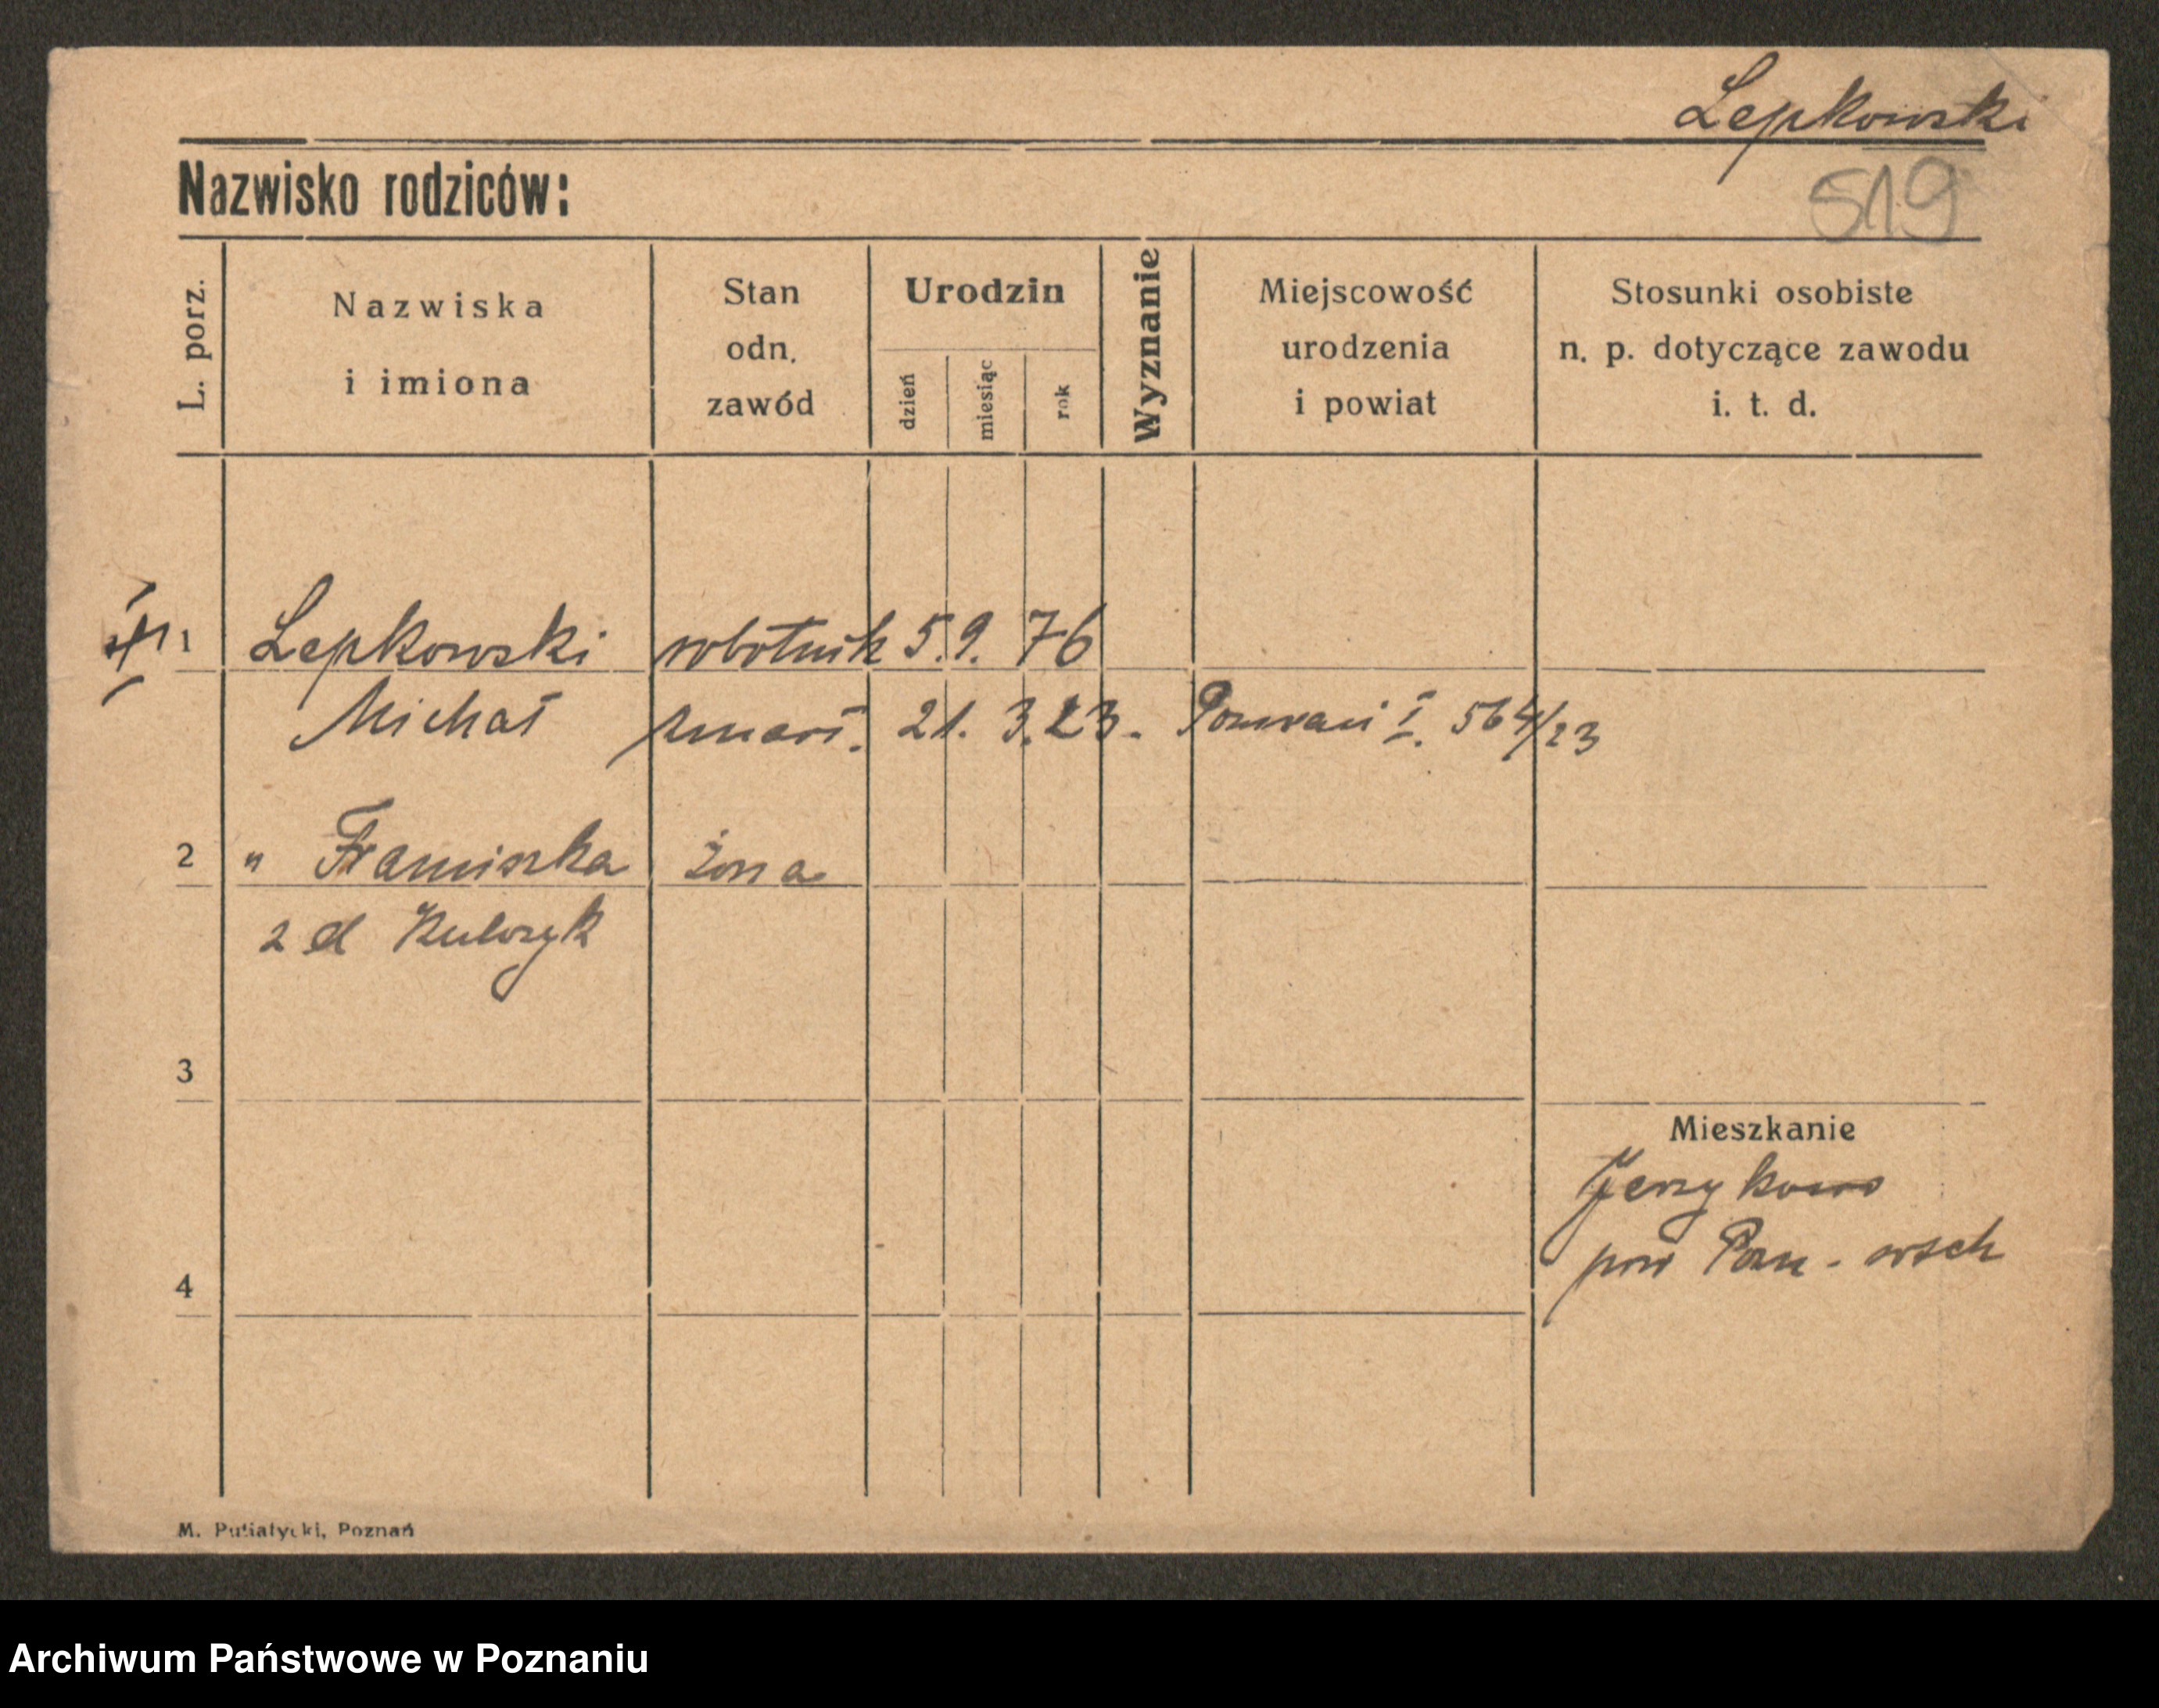 Lepkowski
Nazwisko rodziców:
519
L. porz.
Nazwiska
i imiona
Stan
odn.
zawód
Urodzin
dzień
miesiąc
rok
Wyznanie
Miejscowość
urodzenia
i powiat
Stosunki osobiste
n. p. dotyczące zawodu
i. t. d.
1 Lepkowski robotnik 5. 9. 76
Michał zmarł. 21. 3. 23. Poznań I. 564/23
2 " Franciszka żona
z d Kulczyk
3
Mieszkanie
Jerzykowo
pow Pozn - wsch
4
M. Putiatycki, Poznań
Archiwum Państwowe w Poznaniu